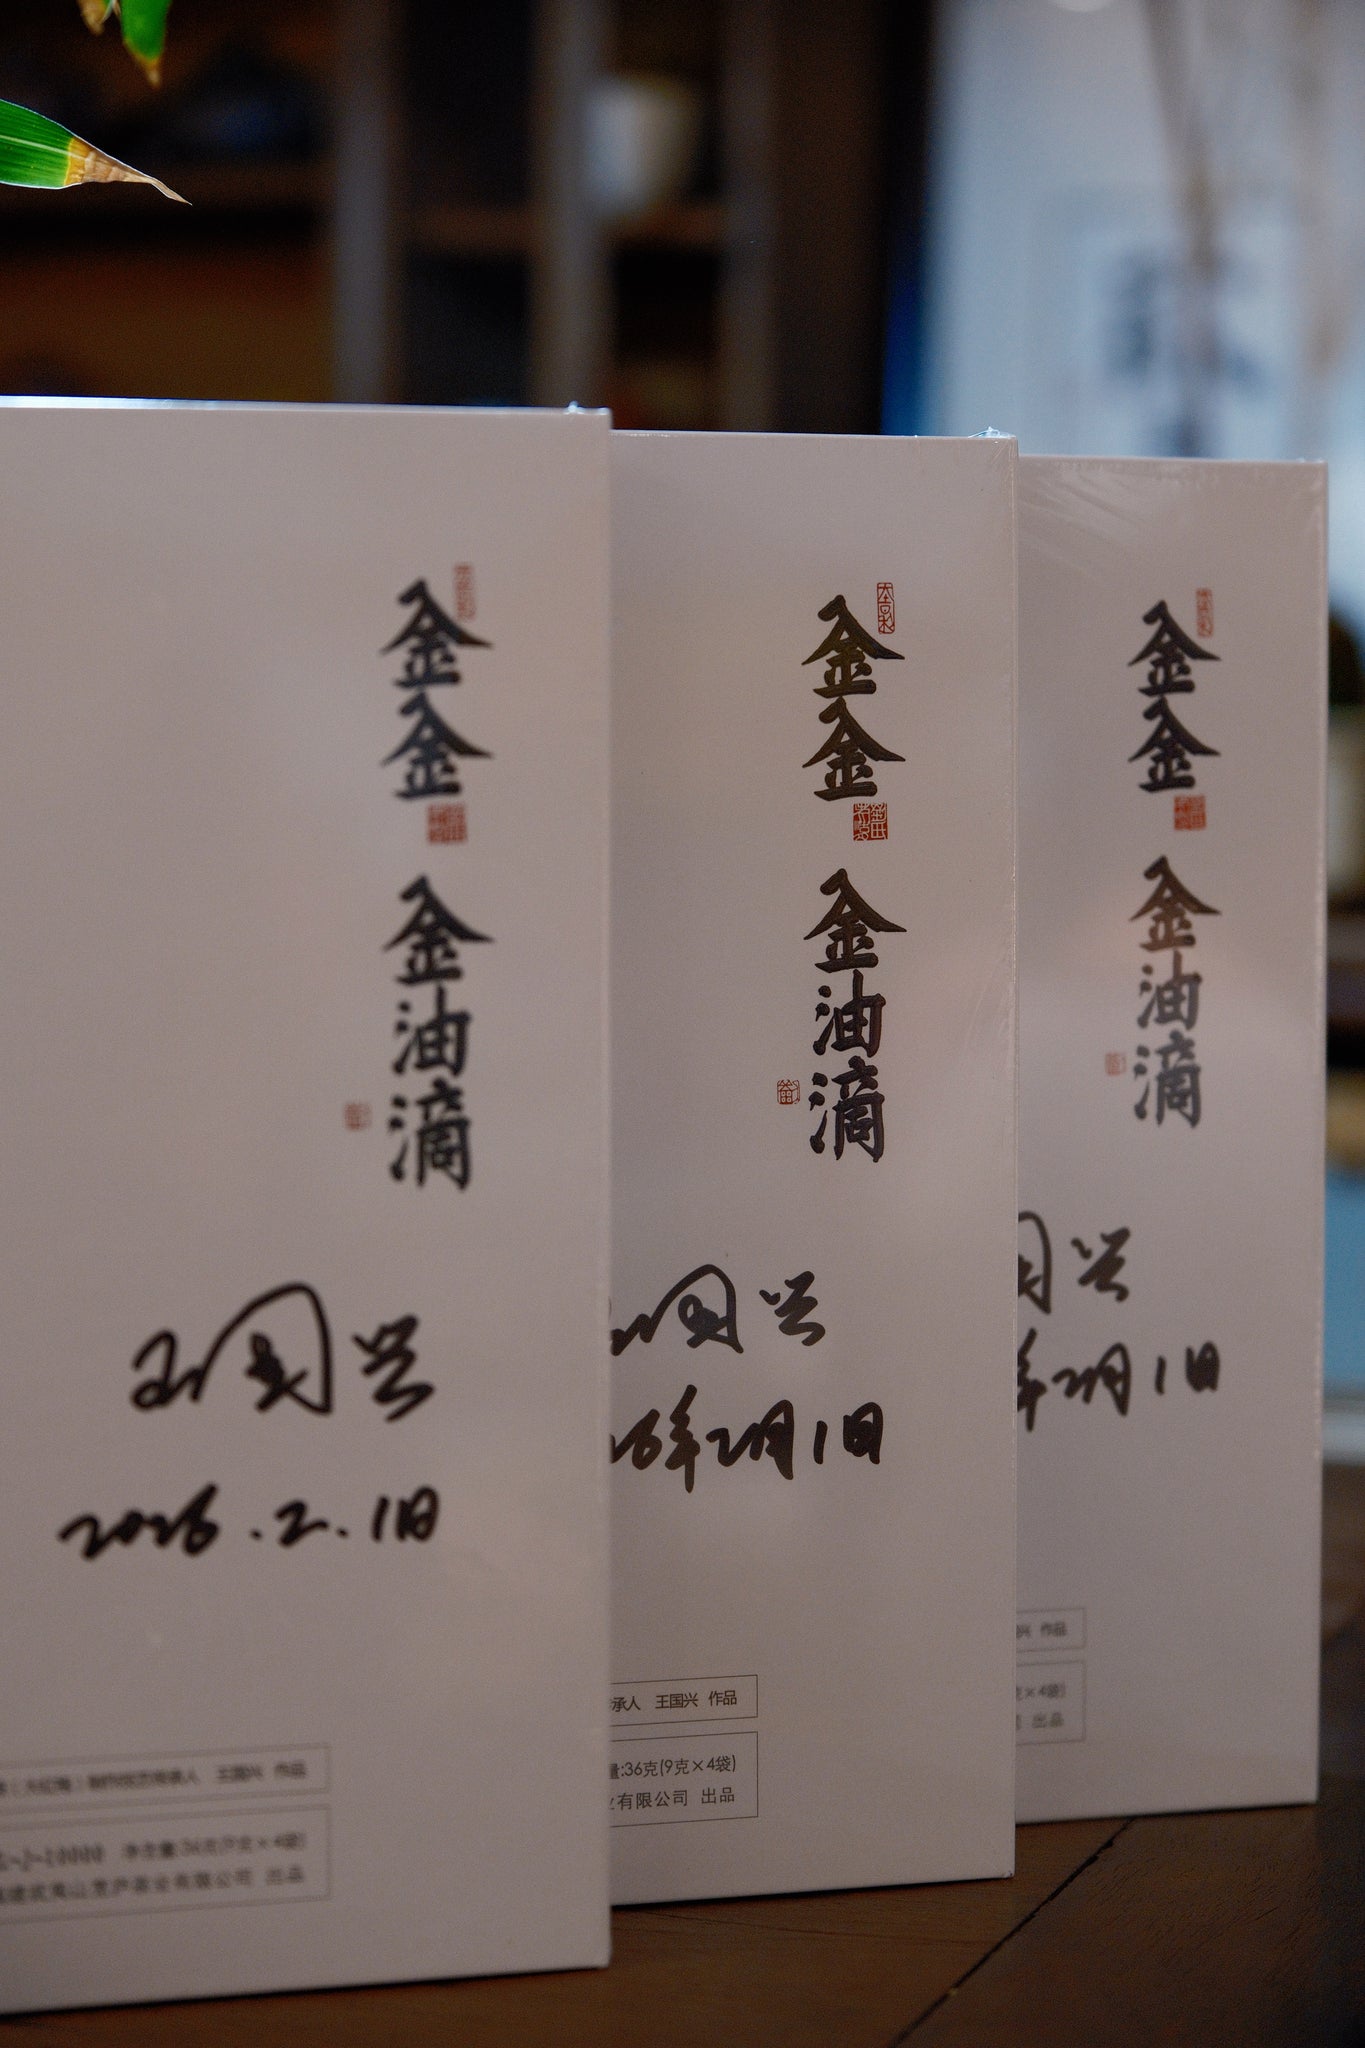 金金
金油滴
王国兴
2026.2.1日
制作技艺传承人 王国兴 作品
J-10000 净含量:36克(9克×4袋)
茶业有限公司 出品
金金
金油滴
国兴
26年2月1日
承人 王国兴 作品
量:36克(9克×4袋)
业有限公司 出品
金金
金油滴
国兴
年2月1日
兴 作品
克×4袋)
出品